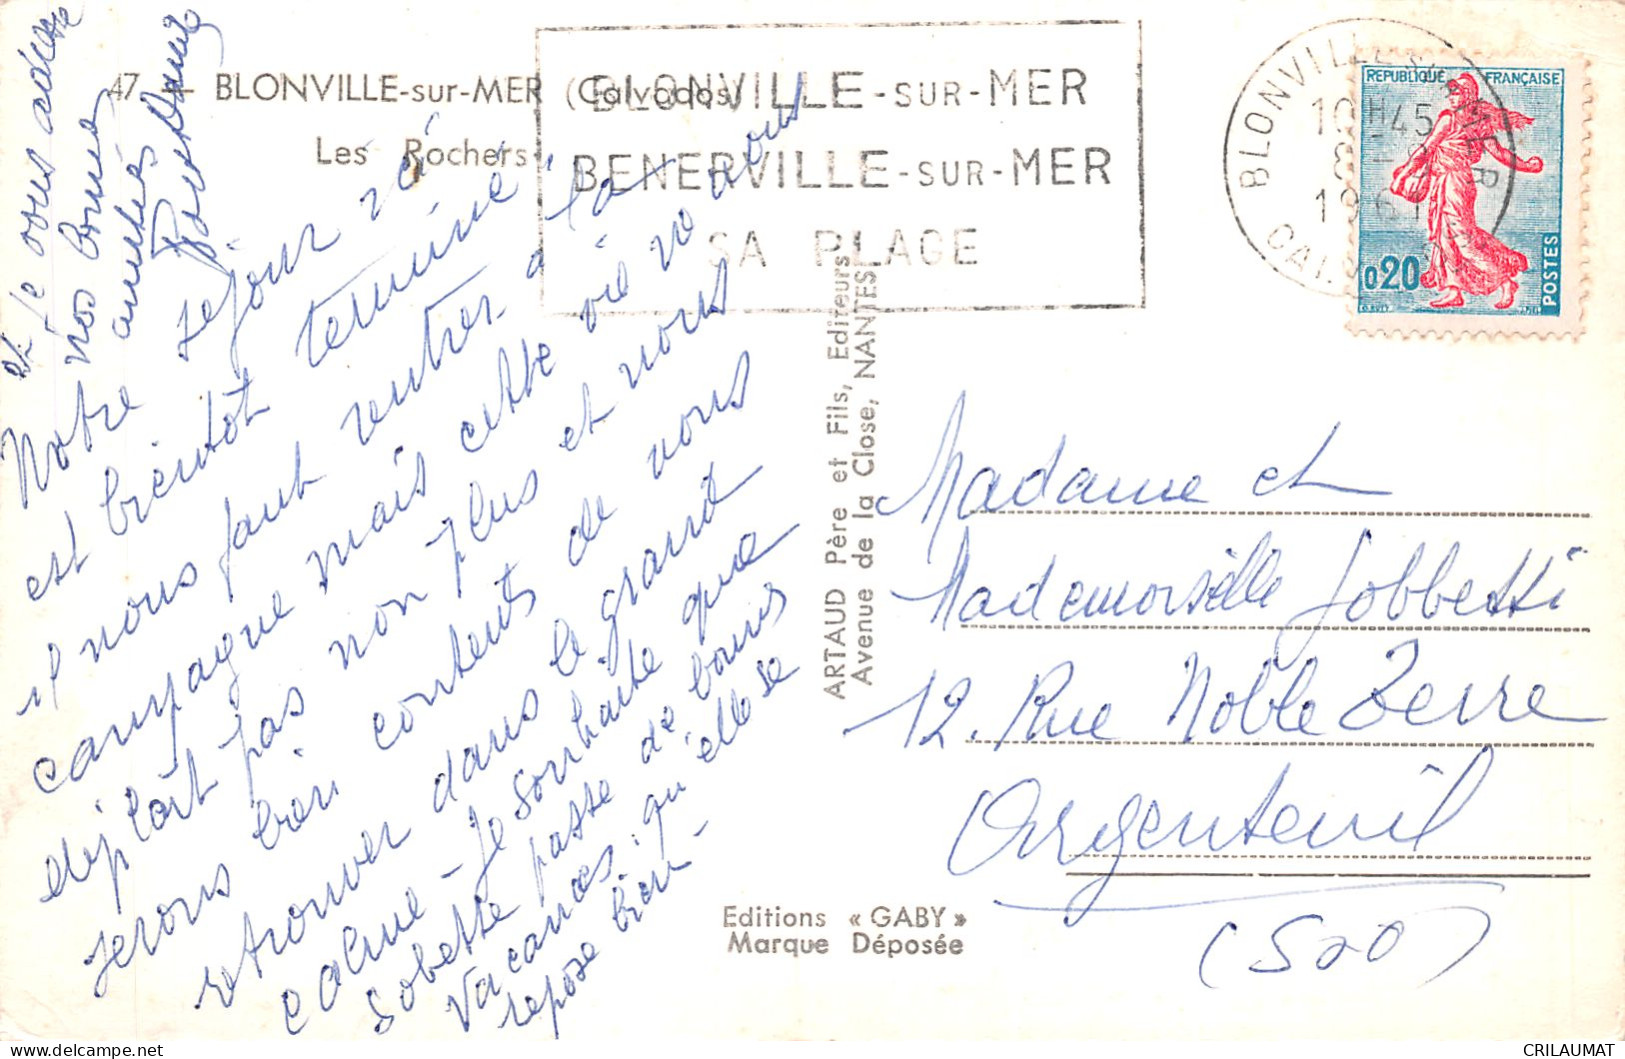 47 - BLONVILLE-sur-MER (Calvados)
Les Rochers
BLONVILLE-SUR-MER
BENERVILLE-SUR-MER
SA PLAGE
BLONVILLE SUR MER
10H45
1961
REPUBLIQUE FRANÇAISE
0,20
POSTES
Notre séjour ici
est bientôt terminé
il nous faut rentrer à la
campagne mais cette vie ne nous
déplait pas non plus et nous
serons bien contents de vous
retrouver dans le grand
calme - Je souhaite que
Sobette passe de bonnes
vacances, qu'elle se
repose bien -
et je vous adresse
nos bonnes
amitiés
ARTAUD Père et Fils, Editeurs
Avenue de la Close, NANTES
Madame et
Mademoiselle Gobbetti
12. Rue Noble Terre
Argenteuil
(S&O)
Editions « GABY »
Marque Déposée
CRILAUMAT